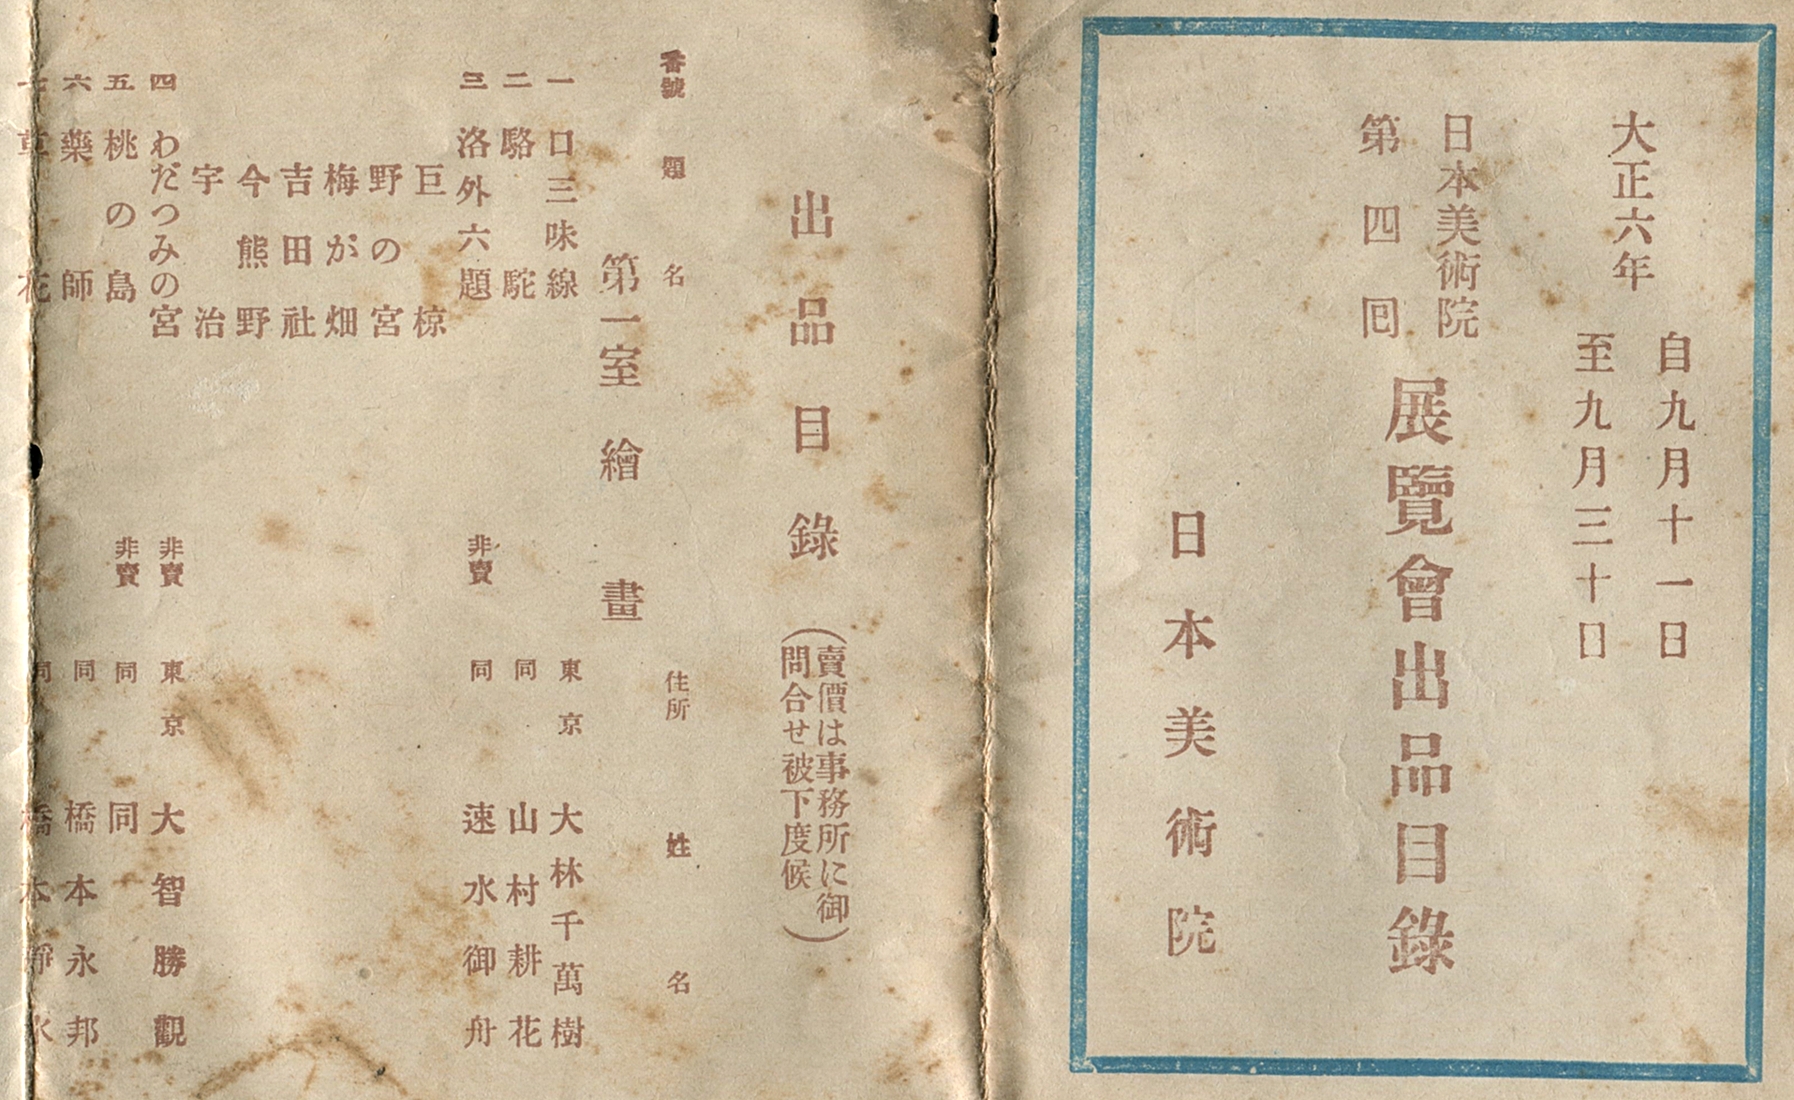 大正六年
自九月十一日
至九月三十日
日本美術院
第四囘
展覽會出品目錄
日本美術院
出品目錄
(賣價は事務所に御
問合せ被下度候)
番號 題 名 住所 姓 名
第一室 繪畫
一 口三味線 東京 大林千萬樹
二 駱駝 同 山村耕花
三 洛外六題 非賣 同 速水御舟
巨椋
野の宮
梅が畑
吉田社
今熊野
宇治
四 わだつみの宮 非賣 東京 大智勝觀
五 桃の島 非賣 同 同
六 藥師 同 橋本永邦
七 草花 同 橋本靜水